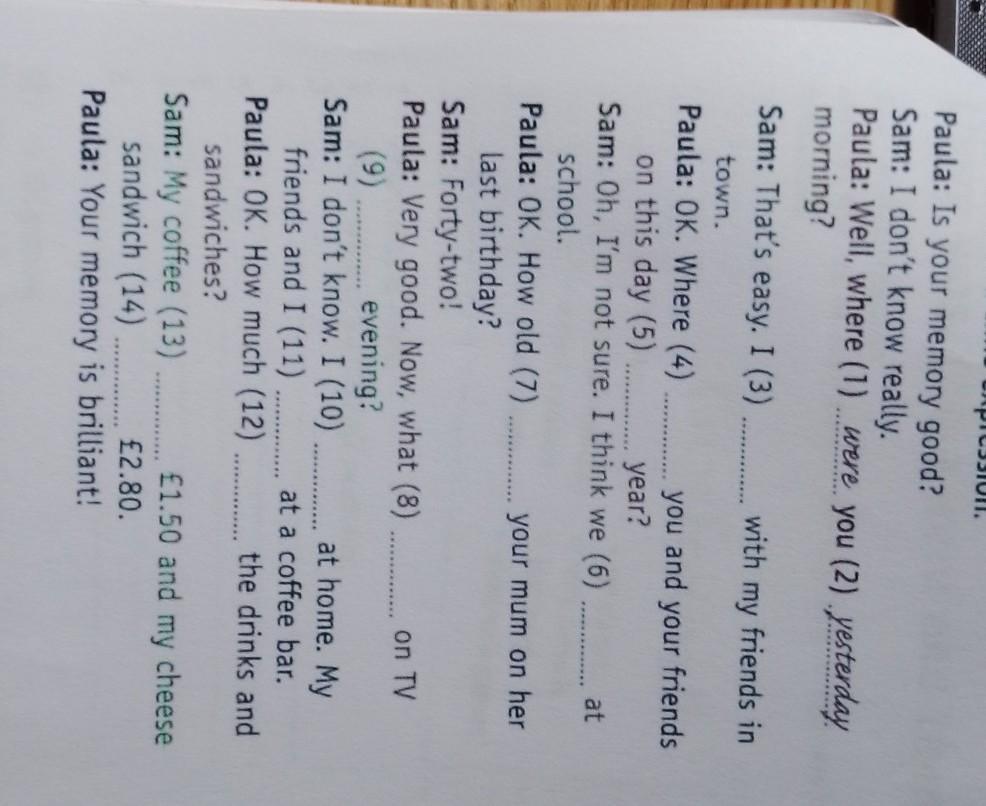 Paula: Is your memory good?
Sam: I don't know really.
Paula: Well, where (1) ..were.. you (2) .yesterday.
morning?
Sam: That's easy. I (3) ............ with my friends in
town.
Paula: OK. Where (4) ............ you and your friends
on this day (5) ............ year?
Sam: Oh, I'm not sure. I think we (6) ............ at
school.
Paula: OK. How old (7) ............ your mum on her
last birthday?
Sam: Forty-two!
Paula: Very good. Now, what (8) ............ on TV
(9) ............ evening?
Sam: I don't know. I (10) ............ at home. My
friends and I (11) ............ at a coffee bar.
Paula: OK. How much (12) ............ the drinks and
sandwiches?
Sam: My coffee (13) ............ £1.50 and my cheese
sandwich (14) ............ £2.80.
Paula: Your memory is brilliant!